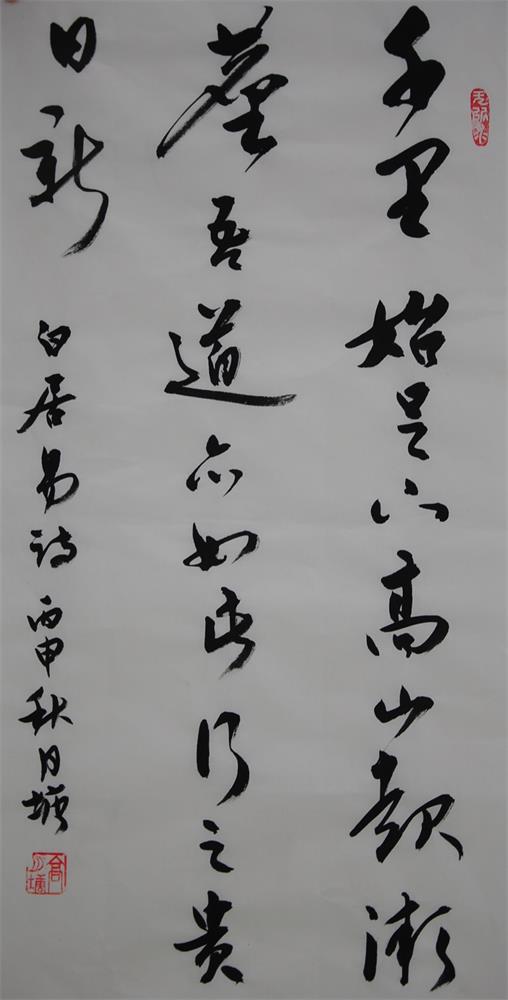 千里始足下高山起微
塵吾道亦如此行之贵
日新
白居易诗丙申秋月塘